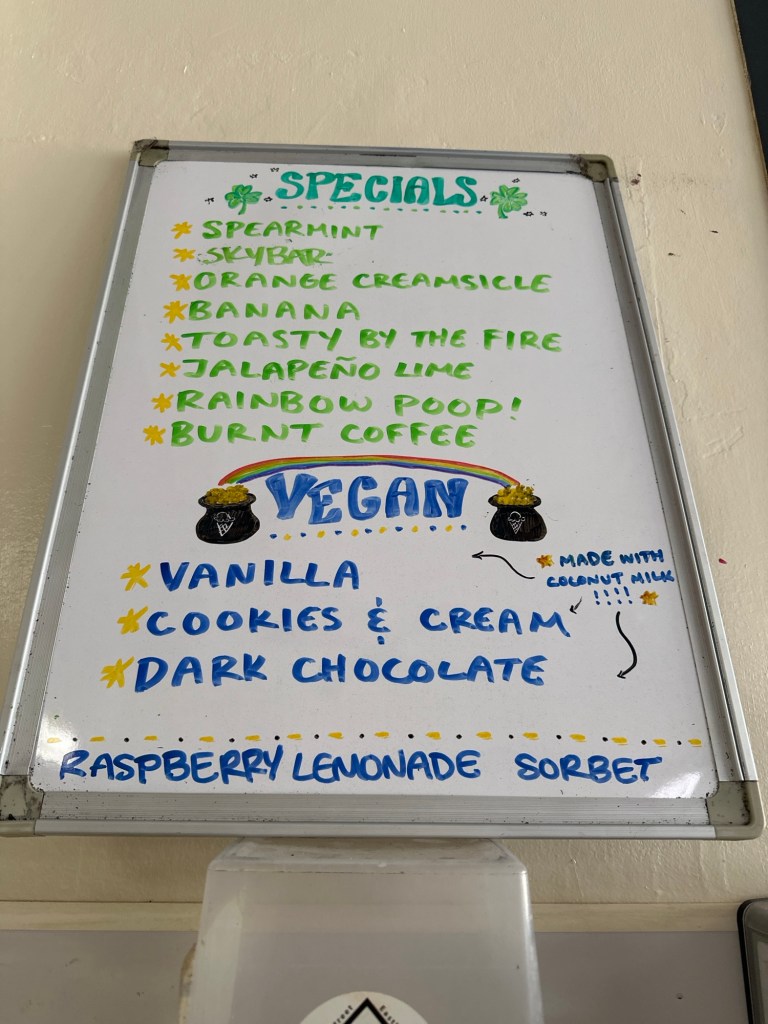 SPECIALS
SPEARMINT
SKYBAR
ORANGE CREAMSICLE
BANANA
TOASTY BY THE FIRE
JALAPEÑO LIME
RAINBOW POOP!
BURNT COFFEE
VEGAN
MADE WITH
COCONUT MILK
!!!!
VANILLA
COOKIES & CREAM
DARK CHOCOLATE
RASPBERRY LEMONADE SORBET